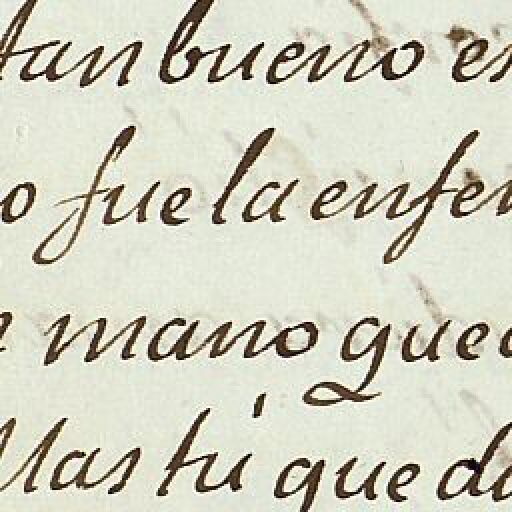 tan bueno es
o fue la enfer
mano que
Mas tú que da